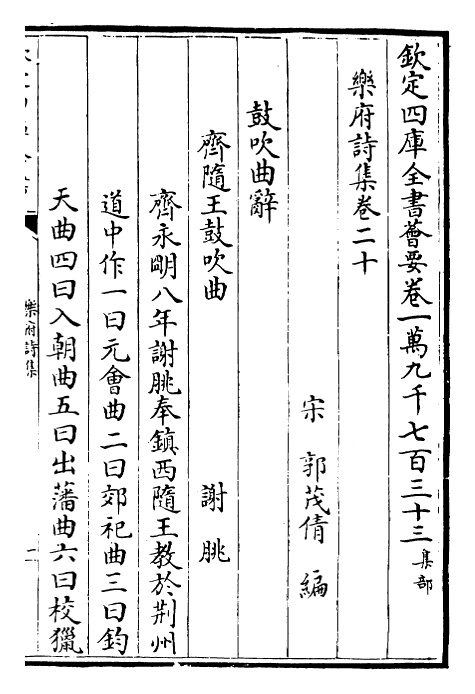 欽定四庫全書薈要卷一萬九千七百三十三集部
樂府詩集卷二十
宋 郭茂倩 編
鼓吹曲辭
齊隨王鼓吹曲 謝朓
齊永明八年謝朓奉鎮西隨王教於荆州
道中作一曰元會曲二曰郊祀曲三曰鈞
天曲四曰入朝曲五曰出藩曲六曰校獵
樂府詩集